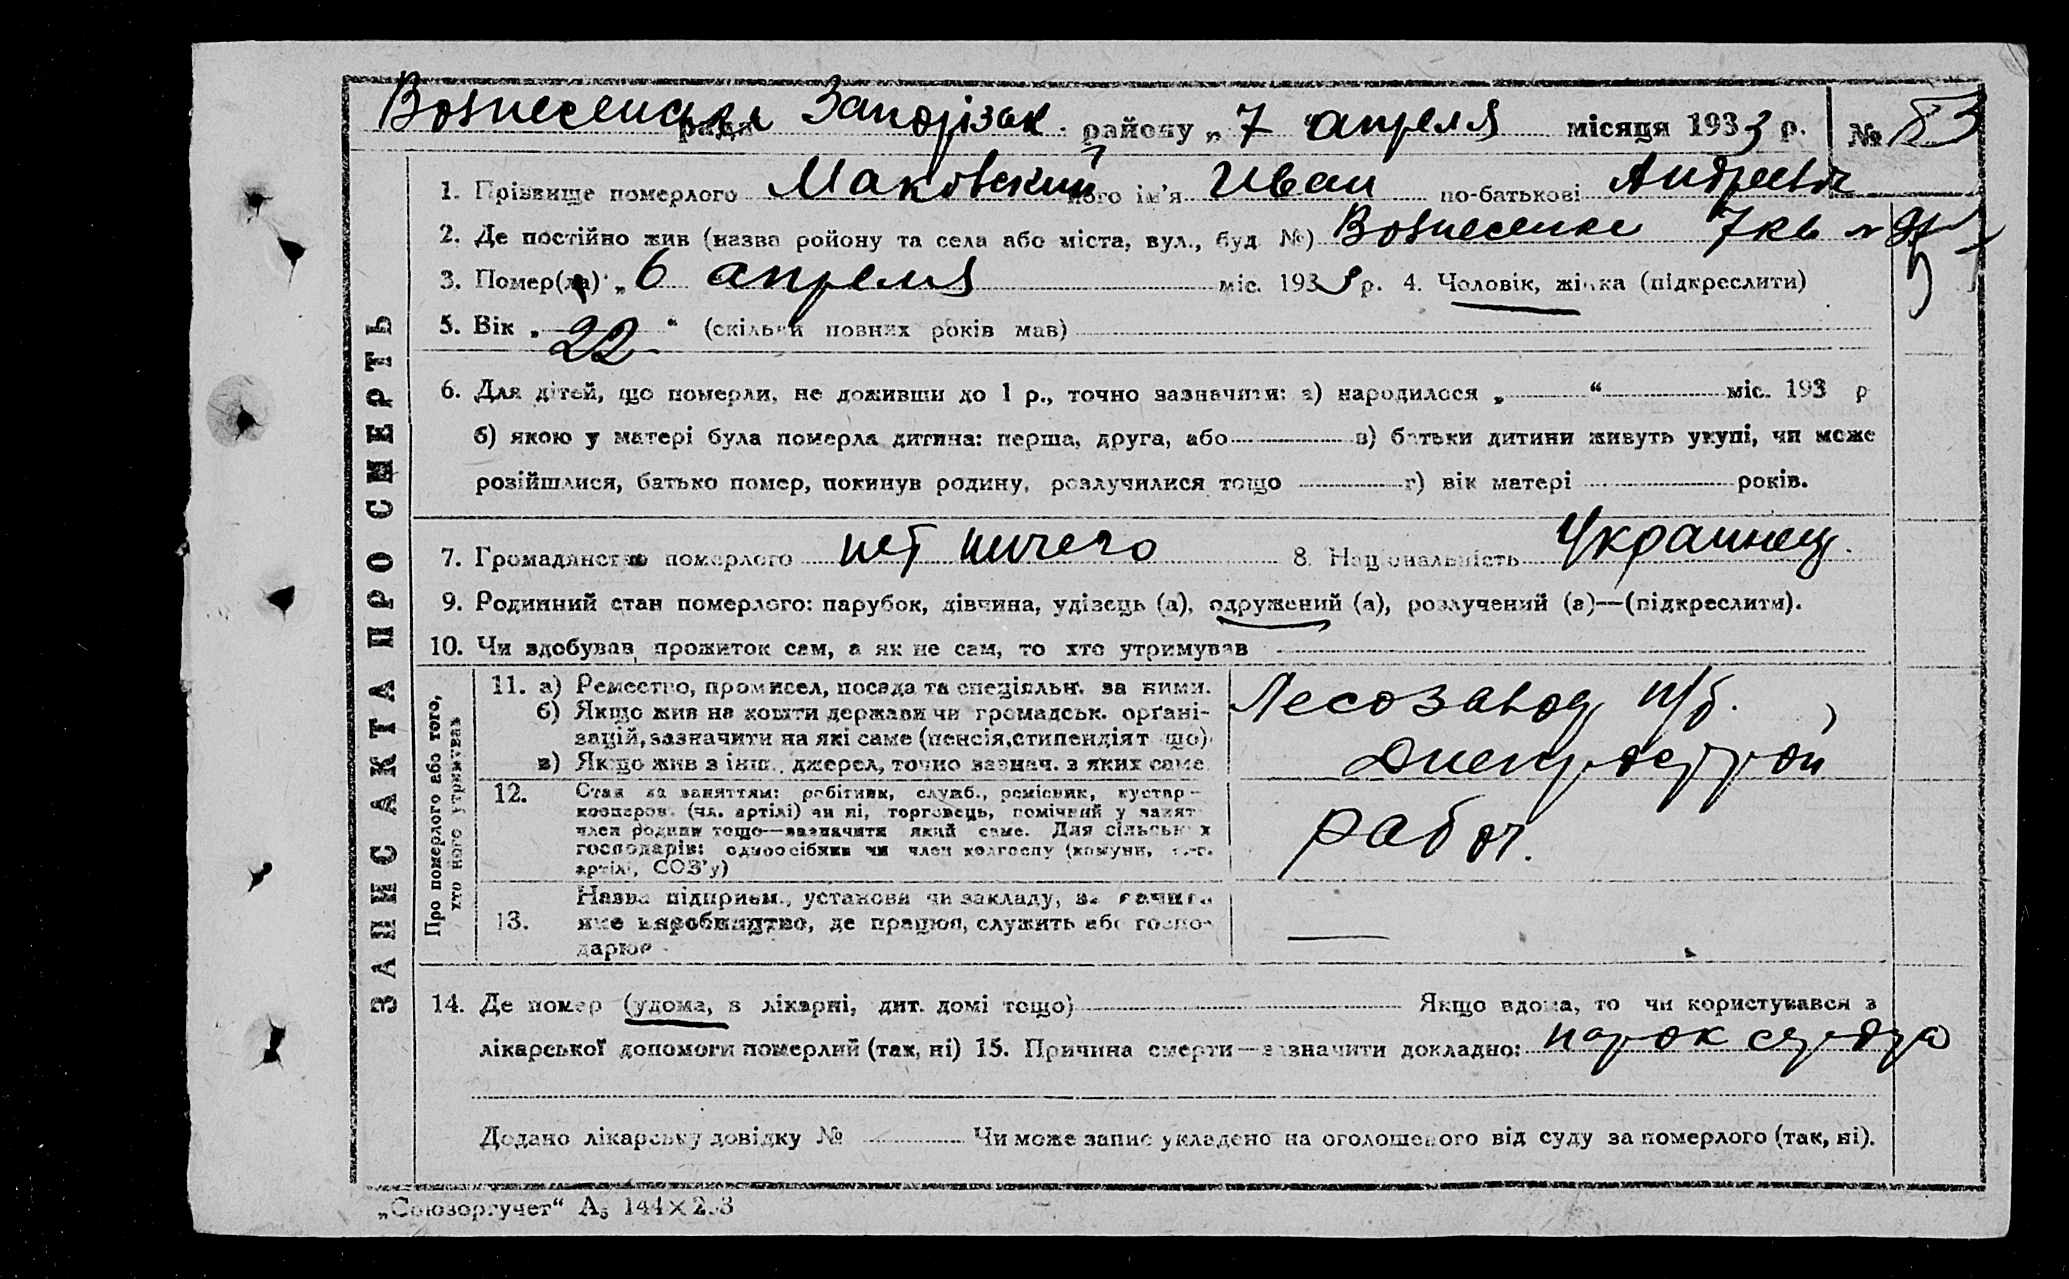 Вознесенская рада Запорізьк. району „7" апреля місяця 1933 р. № 83
1. Прізвище померлого Маковский його ім'я Иван по-батькові Андреевич
2. Де постійно жив (назва ройону та села або міста, вул., буд. №) Вознесенке 7 кв №
3. Помер(ла) „6 апреля міс. 1933 р. 4. Чоловік, жінка (підкреслити)
5. Вік „22" (скільки повних років мав)
6. Для дітей, що померли, не доживши до 1 р., точно зазначити: а) народилося „ “ міс. 193 р
б) якою у матері була померла дитина: перша, друга, або в) батьки дитини живуть укупі, чи може
розійшлися, батько помер, покинув родину, розлучилися тощо г) вік матері років.
7. Громадянство померлого нет ничего 8. Національність Украинец.
9. Родинний стан померлого: парубок, дівчина, удівець (а), одружений (а), розлучений (а)—(підкреслити).
10. Чи здобував прожиток сам, а як не сам, то хто утримував
ЗАПИС АКТА ПРО СМЕРТЬ
Про померлого або того, хто його утримував
11. а) Ремество, промисел, посада та спеціяльн. за ними.
б) Якщо жив на кошти держави чи громадськ. орґані-
зацій, зазначити на які саме (пенсія, стипендіят що)
в) Якщо жив з інш. джерел, точно зазнач. з яких саме
Лесозавод п/б.
Днепрострой
12. Стан за заняттям: робітник, служб., ремісник, кустар-
кооперов. (чл. артілі) чи ні, торговець, помічний у занят
член родини тощо—зазначити який саме. Для сільськ х
господарів: одноосібник чи член колгоспу (комуни, с.-г.
артілі, СОЗ'у)
рабоч.
13. Назва підприєм., установи чи закладу, зазначити
яке виробництво, де працює, служить або госпо-
дарює
14. Де помер (удома, в лікарні, дит. домі тощо) Якщо вдома, то чи користувався з
лікарської допомоги померлий (так, ні) 15. Причина смерти—зазначити докладно: порок сердца
Додано лікарську довідку № Чи може запис укладено на оголошеного від суду за померлого (так, ні).
„Союзоргучет“ А₅ 144×203